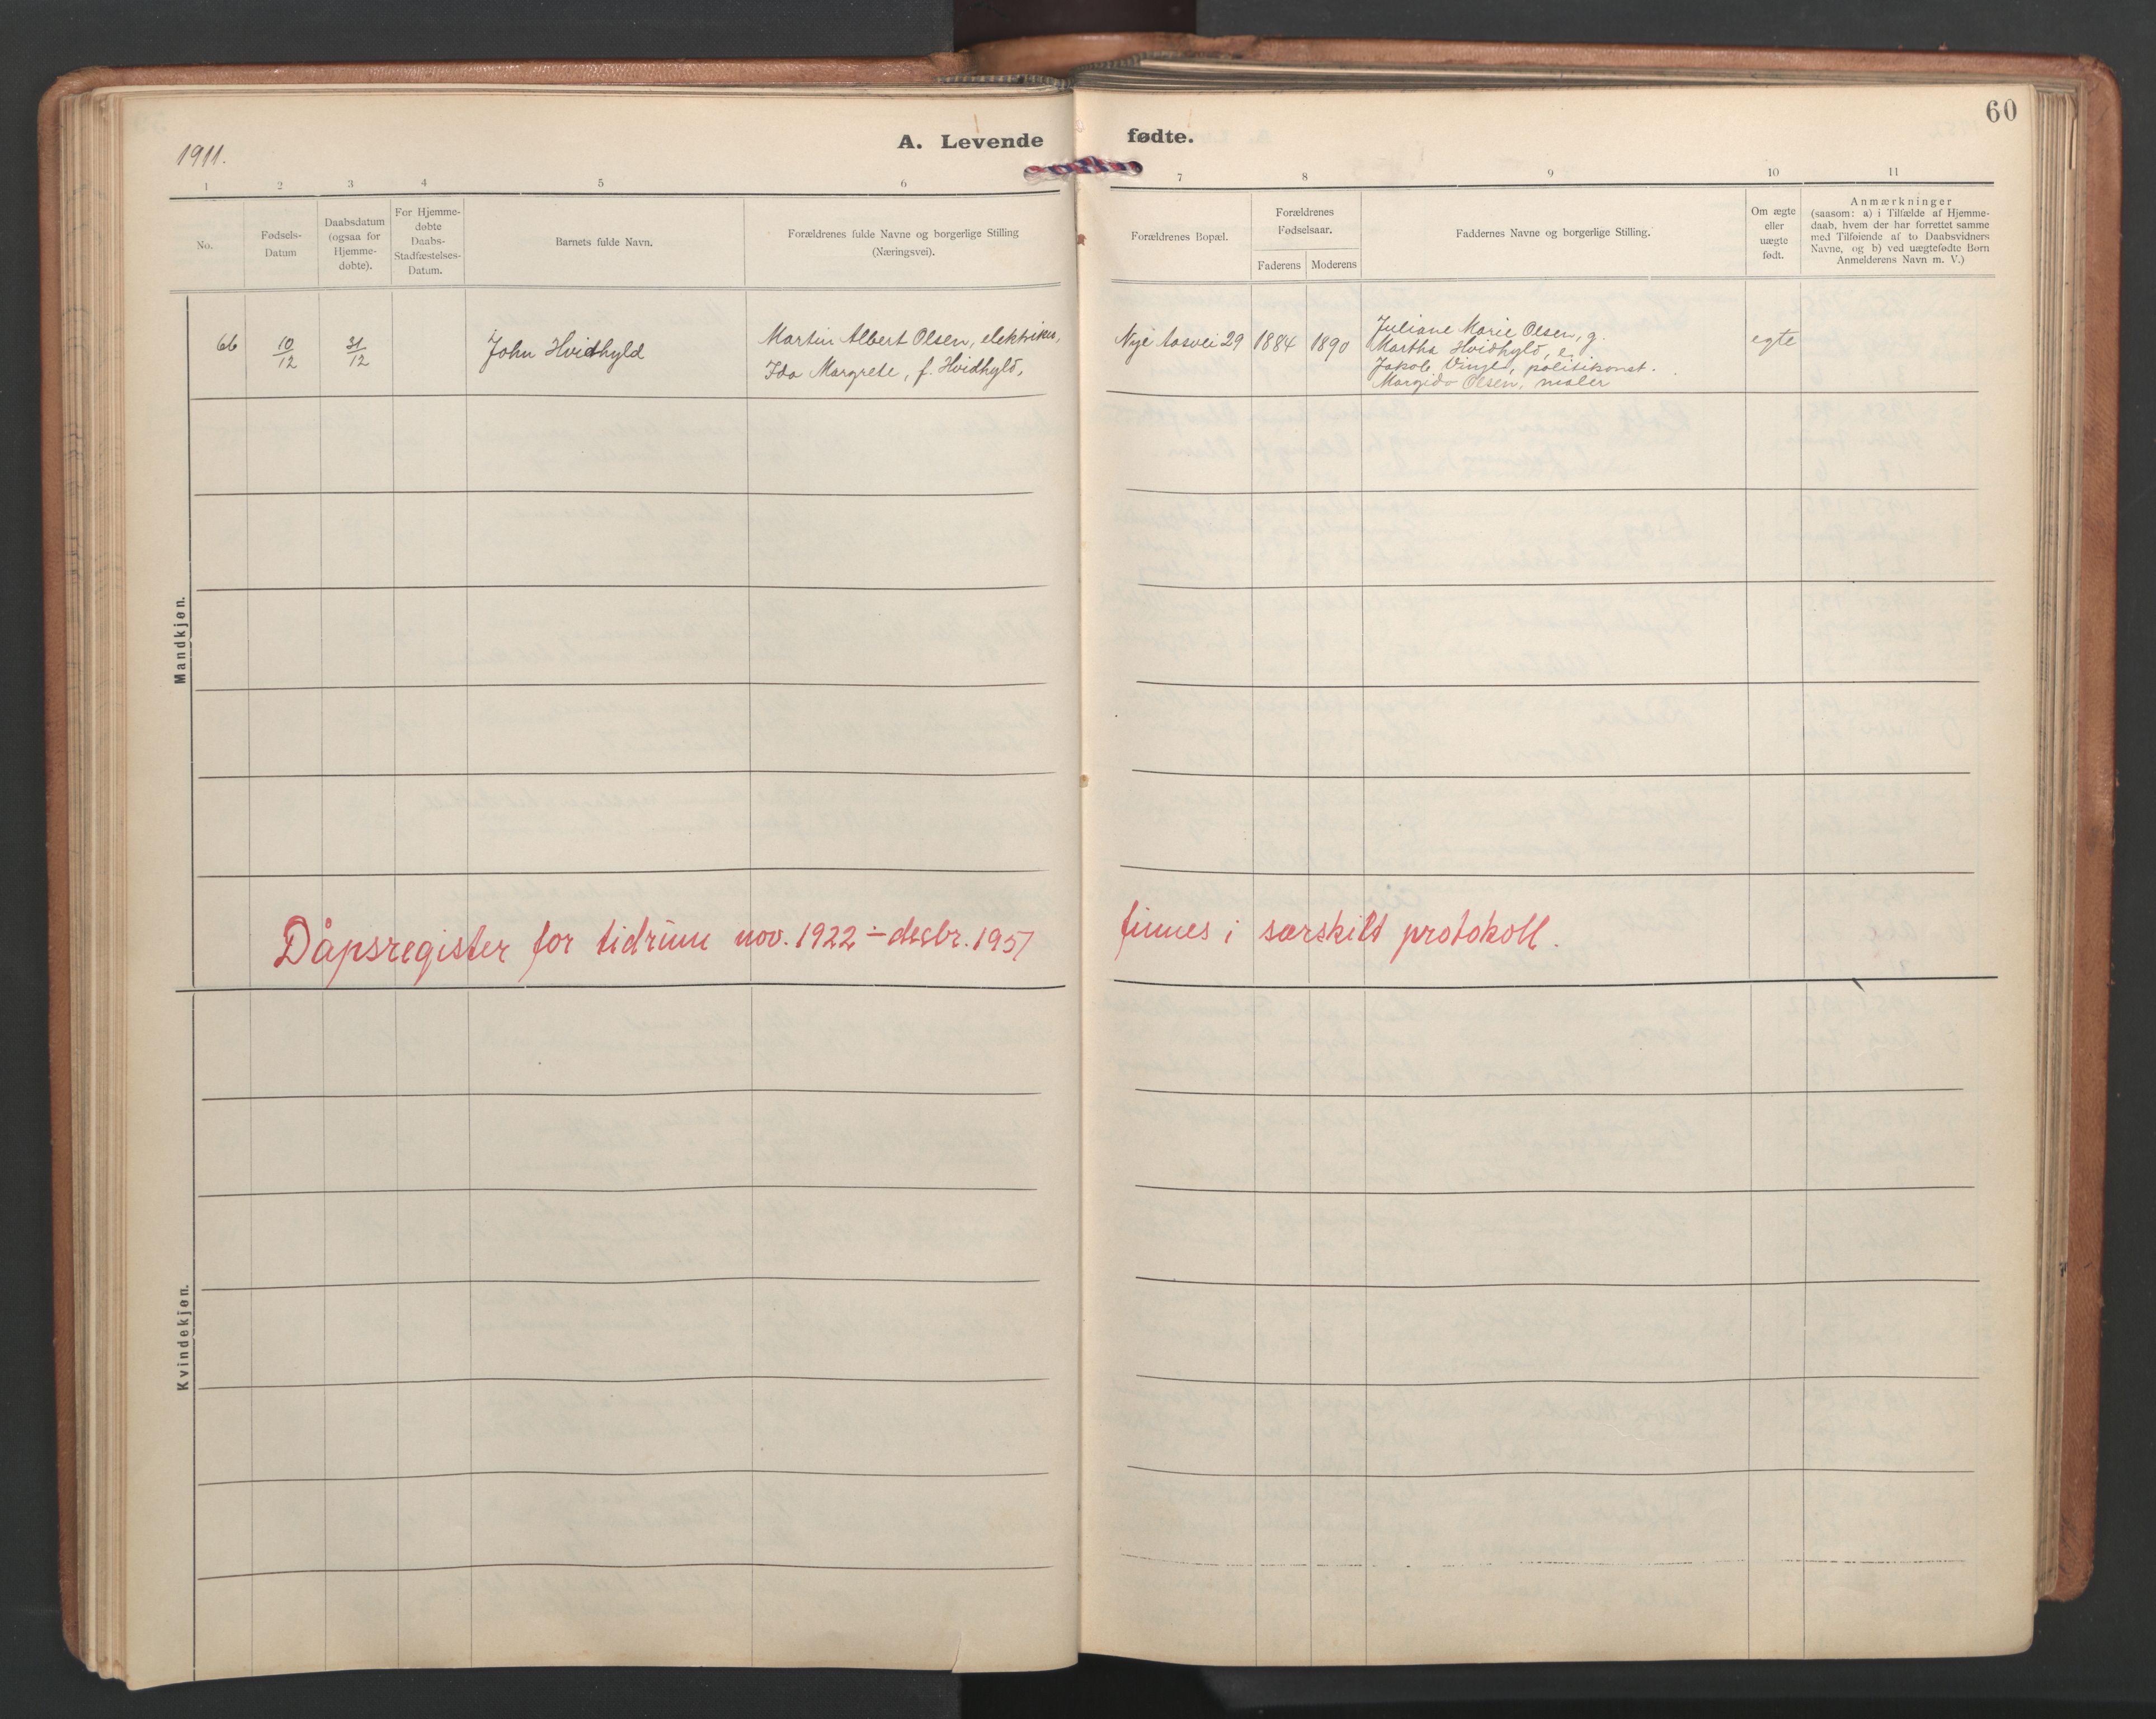 60
1911.
A. Levende fødte.
1 2 3 4 5 6 7 8 9 10 11
No.
Fødsels-
Datum
Daabsdatum
(ogsaa for
Hjemme-
døbte).
For Hjemme-
døbte
Daabs-
Stadfæstelses-
Datum.
Barnets fulde Navn.
Forældrenes fulde Navne og borgerlige Stilling
(Næringsvei).
Forældrenes Bopæl.
Forældrenes
Fødselsaar.
Faderens Moderens
Faddernes Navne og borgerlige Stilling.
Om ægte
eller
uægte
født.
Anmærkninger
(saasom: a) i Tilfælde af Hjemme-
daab, hvem der har forrettet samme
med Tilføiende af to Daabsvidners
Navne, og b) ved uægtefødte Børn
Anmelderens Navn m. V.)
Mandkjøn.
66
10/12
31/12
John Hvidhyld
Martin Albert Olsen, elektriker,
Ida Margrete, f. Hvidhyld,
Nye Aasvei 29
1884
1890
Juliane Marie Olsen, g.
Martha Hvidhyld, e.
Jakob Vinje, politikonst.
Margido Olsen, maler
egte
Dåpsregister for tidrum nov. 1922 ÷ desbr. 1951 finnes i særskilt protokoll.
Kvindekjøn.